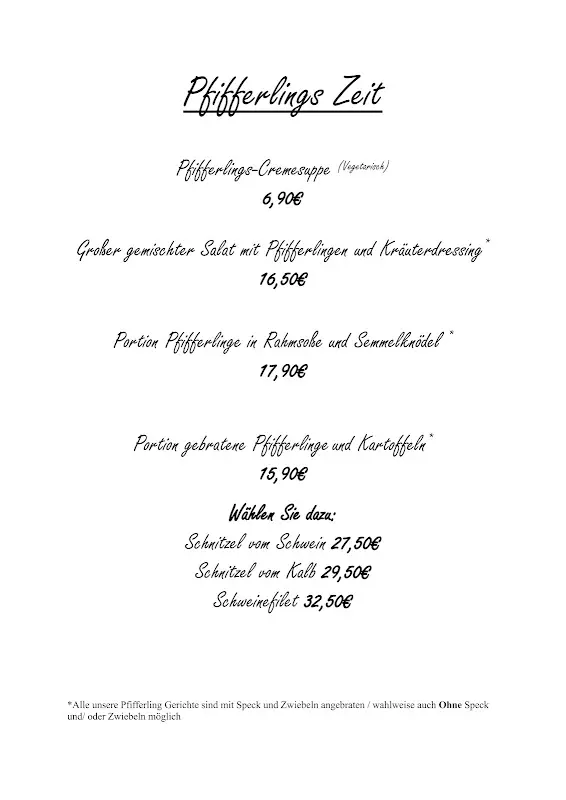 Pfifferlings Zeit
Pfifferlings-Cremesuppe (Vegetarisch)
6,90€
Großer gemischter Salat mit Pfifferlingen und Kräuterdressing*
16,50€
Portion Pfifferlinge in Rahmsoße und Semmelknödel *
17,90€
Portion gebratene Pfifferlinge und Kartoffeln*
15,90€
Wählen Sie dazu:
Schnitzel vom Schwein 27,50€
Schnitzel vom Kalb 29,50€
Schweinefilet 32,50€
*Alle unsere Pfifferling Gerichte sind mit Speck und Zwiebeln angebraten / wahlweise auch Ohne Speck
und/ oder Zwiebeln möglich